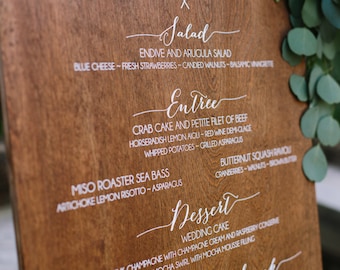 Salad
ENDIVE AND ARUGULA SALAD
BLUE CHEESE ~ FRESH STRAWBERRIES ~ CANDIED WALNUTS ~ BALSAMIC VINAIGRETTE
Entrée
CRAB CAKE AND PETITE FILET OF BEEF
HORSERADISH LEMON AIOLI ~ RED WINE DEMI-GLACE
WHIPPED POTATOES ~ GRILLED ASPARAGUS
BUTTERNUT SQUASH RAVIOLI
CRANBERRIES ~ WALNUTS ~ BROWN BUTTER
MISO ROASTER SEA BASS
ARTICHOKE LEMON RISOTTO ~ ASPARAGUS
Dessert
WEDDING CAKE
CHAMPAGNE WITH CHAMPAGNE CREAM AND RASPBERRY
MOCHA SWIRL WITH MOCHA MOUSSE FILLING